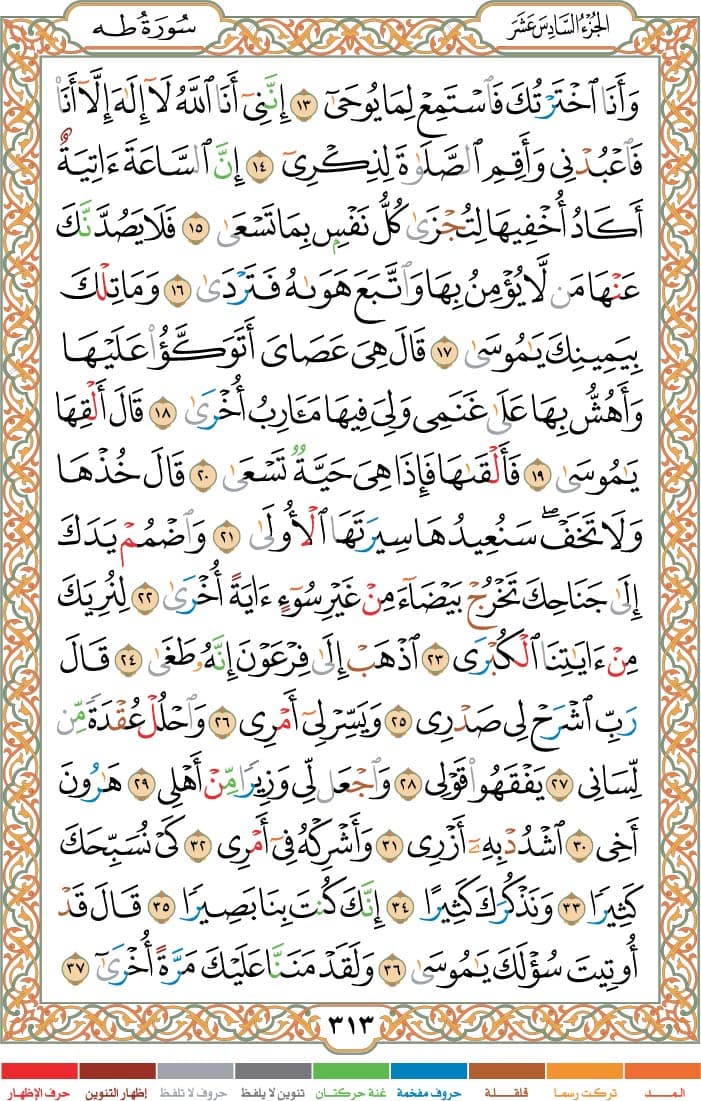 الجزء السادس عشر
سورة طه
وَأَنَا ٱخْتَرْتُكَ فَٱسْتَمِعْ لِمَا يُوحَىٰٓ ١٣ إِنَّنِىٓ أَنَا ٱللَّهُ لَآ إِلَٰهَ إِلَّآ أَنَا۠
فَٱعْبُدْنِى وَأَقِمِ ٱلصَّلَوٰةَ لِذِكْرِىٓ ١٤ إِنَّ ٱلسَّاعَةَ ءَاتِيَةٌ
أَكَادُ أُخْفِيهَا لِتُجْزَىٰ كُلُّ نَفْسٍۭ بِمَا تَسْعَىٰ ١٥ فَلَا يَصُدَّنَّكَ
عَنْهَا مَن لَّا يُؤْمِنُ بِهَا وَٱتَّبَعَ هَوَىٰهُ فَتَرْدَىٰ ١٦ وَمَا تِلْكَ
بِيَمِينِكَ يَٰمُوسَىٰ ١٧ قَالَ هِىَ عَصَاىَ أَتَوَكَّؤُا۟ عَلَيْهَا
وَأَهُشُّ بِهَا عَلَىٰ غَنَمِى وَلِىَ فِيهَا مَـَٔارِبُ أُخْرَىٰ ١٨ قَالَ أَلْقِهَا
يَٰمُوسَىٰ ١٩ فَأَلْقَىٰهَا فَإِذَا هِىَ حَيَّةٌ تَسْعَىٰ ٢٠ قَالَ خُذْهَا
وَلَا تَخَفْ ۖ سَنُعِيدُهَا سِيرَتَهَا ٱلْأُولَىٰ ٢١ وَٱضْمُمْ يَدَكَ
إِلَىٰ جَنَاحِكَ تَخْرُجْ بَيْضَآءَ مِنْ غَيْرِ سُوٓءٍ ءَايَةً أُخْرَىٰ ٢٢ لِنُرِيَكَ
مِنْ ءَايَٰتِنَا ٱلْكُبْرَى ٢٣ ٱذْهَبْ إِلَىٰ فِرْعَوْنَ إِنَّهُۥ طَغَىٰ ٢٤ قَالَ
رَبِّ ٱشْرَحْ لِى صَدْرِى ٢٥ وَيَسِّرْ لِىٓ أَمْرِى ٢٦ وَٱحْلُلْ عُقْدَةً مِّن
لِّسَانِى ٢٧ يَفْقَهُوا۟ قَوْلِى ٢٨ وَٱجْعَل لِّى وَزِيرًا مِّنْ أَهْلِى ٢٩ هَٰرُونَ
أَخِى ٣٠ ٱشْدُدْ بِهِۦٓ أَزْرِى ٣١ وَأَشْرِكْهُ فِىٓ أَمْرِى ٣٢ كَىْ نُسَبِّحَكَ
كَثِيرًا ٣٣ وَنَذْكُرَكَ كَثِيرًا ٣٤ إِنَّكَ كُنتَ بِنَا بَصِيرًا ٣٥ قَالَ قَدْ
أُوتِيتَ سُؤْلَكَ يَٰمُوسَىٰ ٣٦ وَلَقَدْ مَنَنَّا عَلَيْكَ مَرَّةً أُخْرَىٰٓ ٣٧
٣١٣
المـــد تركت رسما قلقلة حروف مفخمة غنة حركتان تنوين لا يلفظ حروف لا تلفظ إظهار التنوين حرف الإظهار